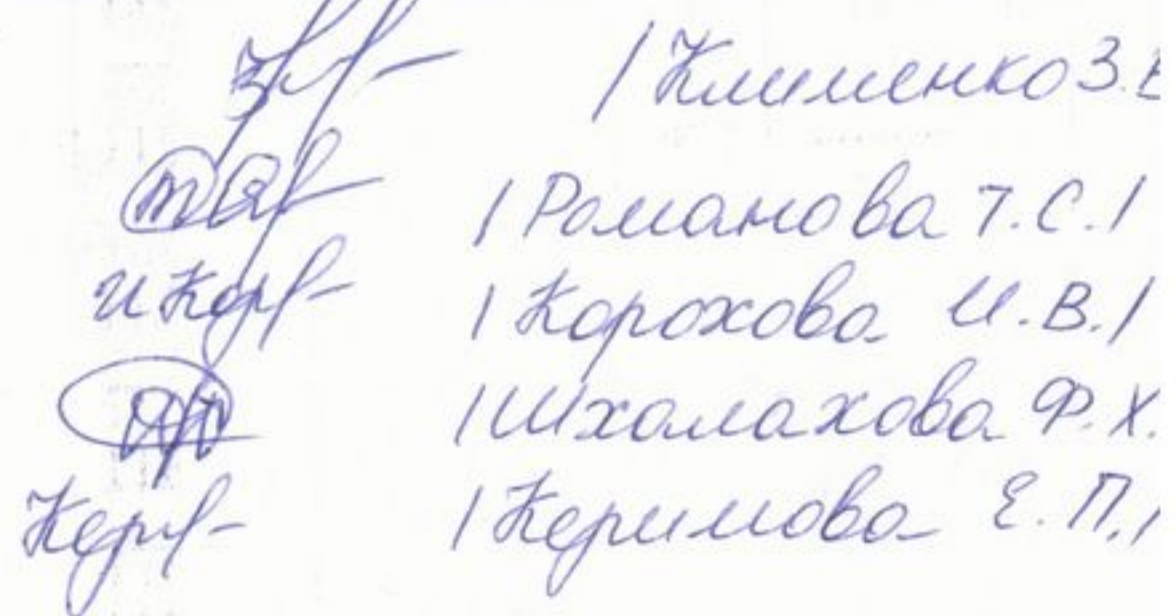 / Клименко З.
/ Романова Т.С./
/ Корохова И.В./
/ Шхалахова Ф.Х.
Кер / Керимова Е.П./